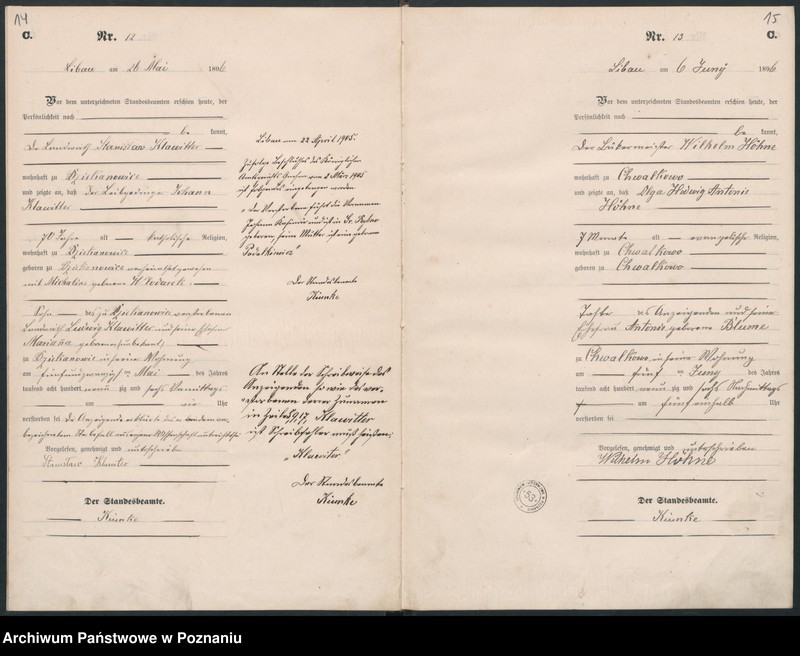 14
C.
Nr. 12
Libau am 26 Mai 1896
Vor dem unterzeichneten Standesbeamten erschien heute, der
Persönlichkeit nach
be kannt,
Der Landwirth Stanislaw Klawitter
wohnhaft zu Dziekanowice
und zeigte an, daß der Leibgedinger Johann
Klawitter
70 Jahre alt katholische Religion,
wohnhaft zu Dziekanowice
geboren zu Dziekanowice verheirathet gewesen
mit Michalina geborene Wlodarek
Sohn des zu Dziekanowice verstorbenen
Landwirth Ludwig Klawitter und seine Ehefrau
Marianna geborene (unbekannt)
zu Dziekanowice in seine Wohnung
am fünfundzwanzigsten Mai des Jahres
tausend acht hundert neun zig und sechs Vormittags
um Uhr
verstorben sei. Der Anzeigende erklärte
bezeichneten Sterbefall aus eigener Wissenschaft unterrichtet
Vorgelesen, genehmigt und unterschrieben
Stanislaw Klawiter
Der Standesbeamte.
Kiunke
Libau am 22 April 1905.
Zufolge Beschlusses des Königlichen
Amtsgerichts Gnesen vom 2 März 1905
ist folgendes eingetragen worden
der Verstorbene führt die Vornamen
Johann und ist in
geboren, seine Mutter ist eine geborene
Der Standesbeamte
Kiunke
An Stelle der Schreibweise des
Anzeigenden sowie des ver-
storbenen deren Zunamen
in Zeile Klawitter
ist Schreibfehler muß heißen:
„Klawiter“
Der Standesbeamte
Kiunke
15
C.
Nr. 13
Libau am 6 Juny 1896
Vor dem unterzeichneten Standesbeamten erschien heute, der
Persönlichkeit nach
be kannt,
Der Bürgermeister Wilhelm Höhne
wohnhaft zu Chwalkowo
und zeigte an, daß Olga Hedwig Antonie
Höhne
7 Monate alt evangelische Religion,
wohnhaft zu Chwalkowo
geboren zu Chwalkowo
Tochter des Anzeigenden und seine
Ehefrau Antonie geborene Blueme
zu Chwalkowo in seine Wohnung
am fünf ten Juny des Jahres
tausend acht hundert neun zig und sechs Nachmittags
um fünf einhalb Uhr
verstorben sei
Vorgelesen, genehmigt und unterschrieben
Wilhelm Höhne
Der Standesbeamte.
Kiunke
53
Archiwum Państwowe w Poznaniu